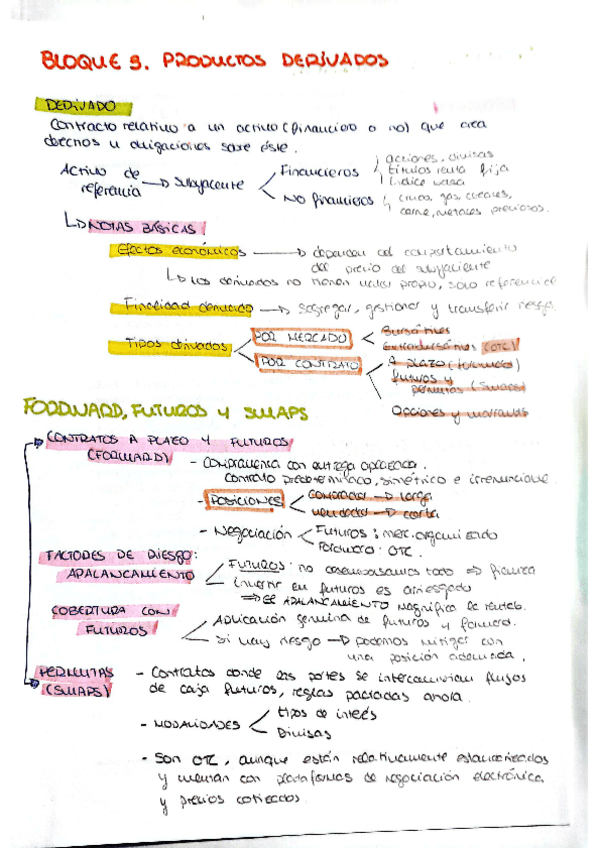 BLOQUE 9. PRODUCTOS DERIVADOS
DERIVADO
Contracto relativo a un activo (financiero o no) que crea
derechos u obligaciones sobre éste.
Activo de
referencia → Subyacente
Financieros
acciones, divisas
títulos renta fija
índice
No financieros
crudo, gas, cereales,
carne, metales preciosos.
NOTAS BÁSICAS
Efectos económicos → dependen del comportamiento
del precio del subyacente
Los derivados no tienen valor propio, solo referencia
Finalidad derivado → Segregar, gestionar y transferir riesgo.
Tipos derivados
POR MERCADO
Bursátiles
Extrabursátiles (OTC)
POR CONTRATO
A plazo (forwards)
futuros y
permutas (swaps)
Opciones y warrants
FORDWARD, FUTUROS Y SWAPS
CONTRATOS A PLAZO Y FUTUROS
(FORWARD)
- Compraventa con entrega aplazada.
Contrato predeterminado, simétrico e irrenunciable
- POSICIONES
Comprador → larga
vendedor → corta
- Negociación
Futuros: merc. organizado
Forward: OTC.
FACTORES DE RIESGO:
APALANCAMIENTO
FUTUROS: no desembolsamos todo ⇒ fianza
invertir en futuros es arriesgado
⇒ el APALANCAMIENTO magnifica la rentab.
COBERTURA CON
FUTUROS
Aplicación genuina de futuros y forward.
Si hay riesgo → podemos mitigar con
una posición adecuada.
PERMUTAS
(SWAPS)
- Contratos donde las partes se intercambian flujos
de caja futuros, reglas pactadas ahora.
- MODALIDADES
tipos de interés
Divisas
- Son OTC, aunque están relativamente estandarizados
y cuentan con plataformas de negociación electrónica
y precios cotizados.